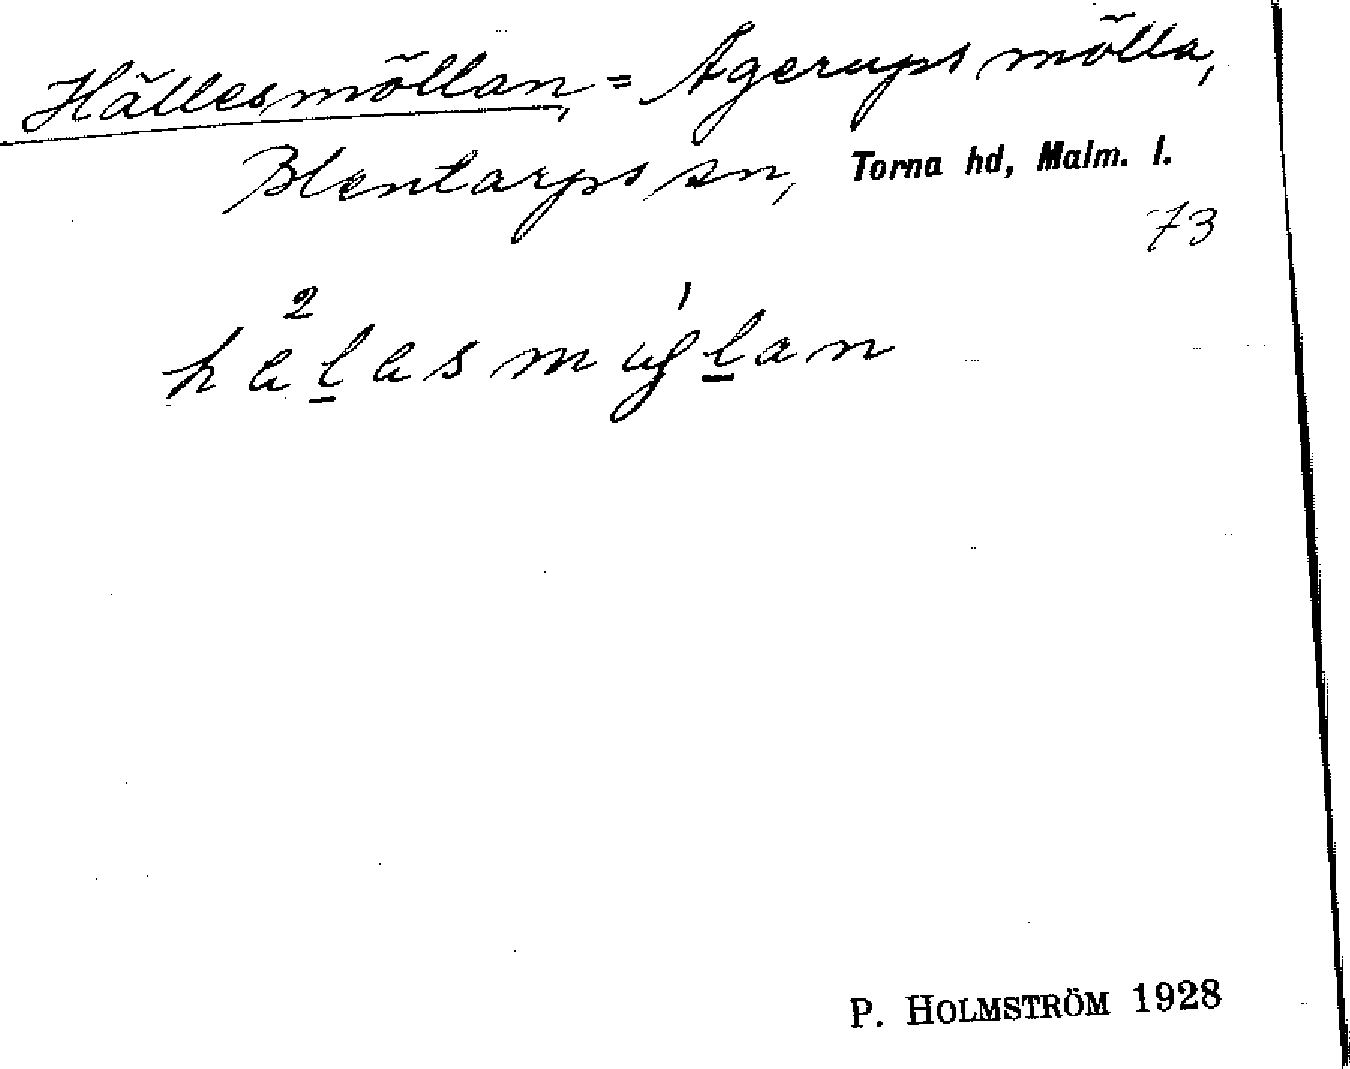 Hällesmöllan, = Ågerups mölla,
Blentarps sn, Torna hd, Malm. l.
73
P. HOLMSTRÖM 1928